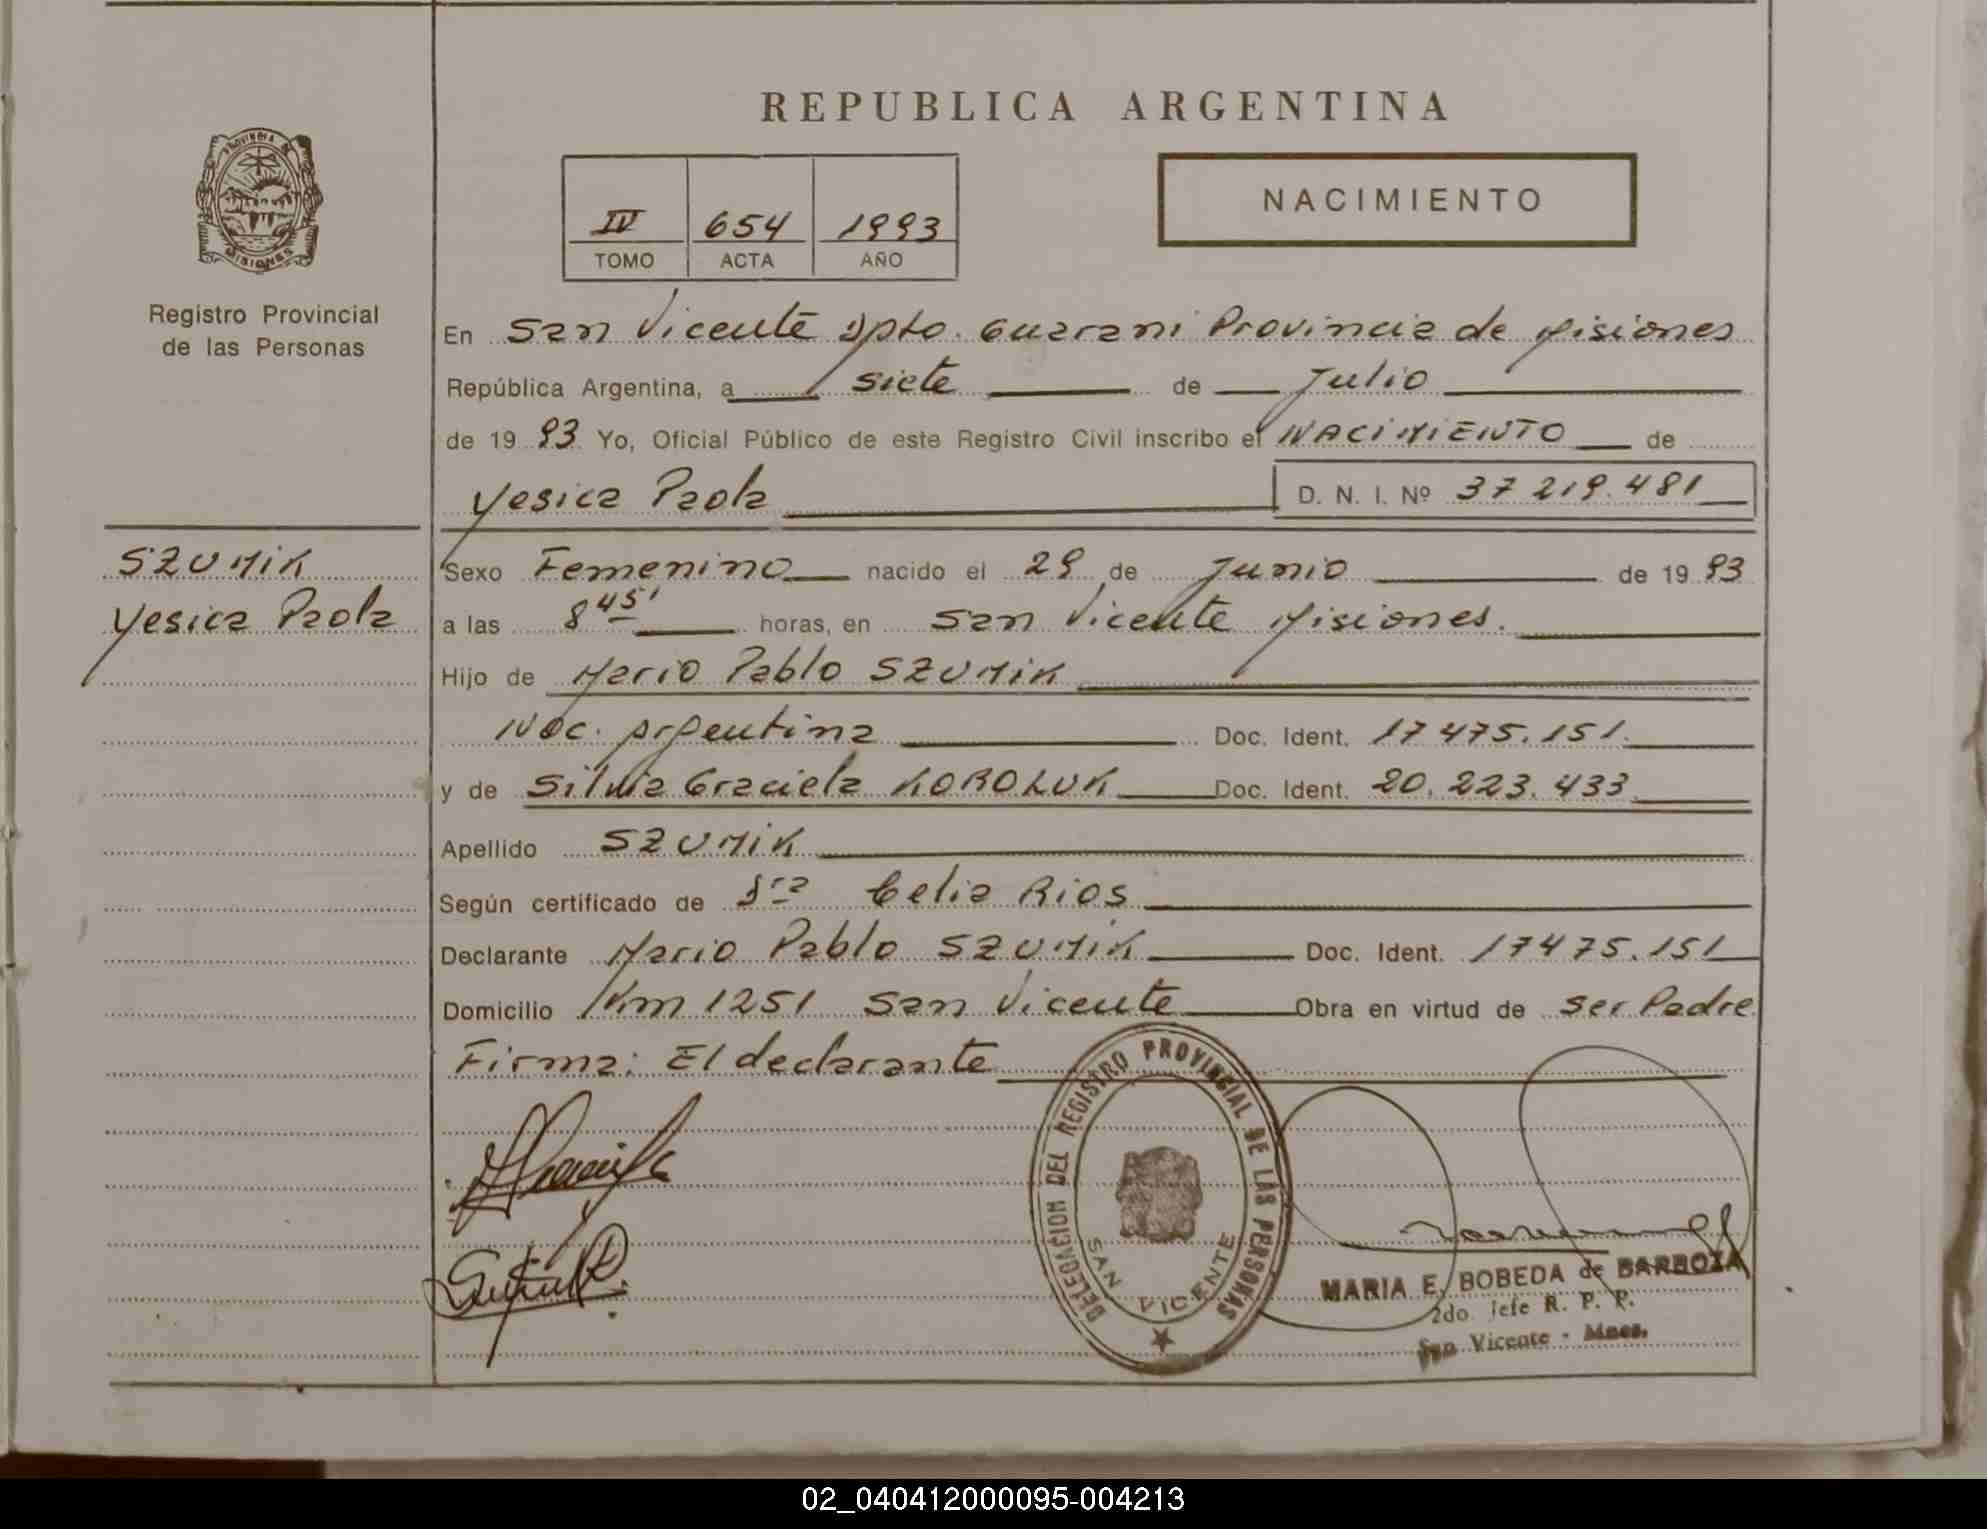 REPUBLICA ARGENTINA
PROVINCIA DE
MISIONES
Registro Provincial
de las Personas
IV 654 1993
TOMO ACTA AÑO
NACIMIENTO
En San Vicente Dpto. Guarani Provincia de Misiones
República Argentina, a siete de Julio
de 1993 Yo, Oficial Público de este Registro Civil inscribo el NACIMIENTO de
Yesica Paola D. N. I. Nº 37 219.481
SZUMIK
Yesica Paola
Sexo Femenino nacido el 29 de Junio de 1993
a las 8 45' horas, en San Vicente Misiones.
Hijo de Mario Pablo SZUMIK
Nac. Argentina Doc. Ident. 17 475.151.
y de Silvia Graciela KOROLUK Doc. Ident. 20.223.433
Apellido SZUMIK
Según certificado de Dra Celia Rios
Declarante Mario Pablo SZUMIK Doc. Ident. 17475.151
Domicilio Km 1251 San Vicente Obra en virtud de ser Padre
Firma: El declarante
DELEGACION DEL REGISTRO PROVINCIAL DE LAS PERSONAS
SAN VICENTE
MARIA E. BOBEDA de BARBOZA
2do. Jefe R. P. P.
San Vicente - Mnes.
02_040412000095-004213